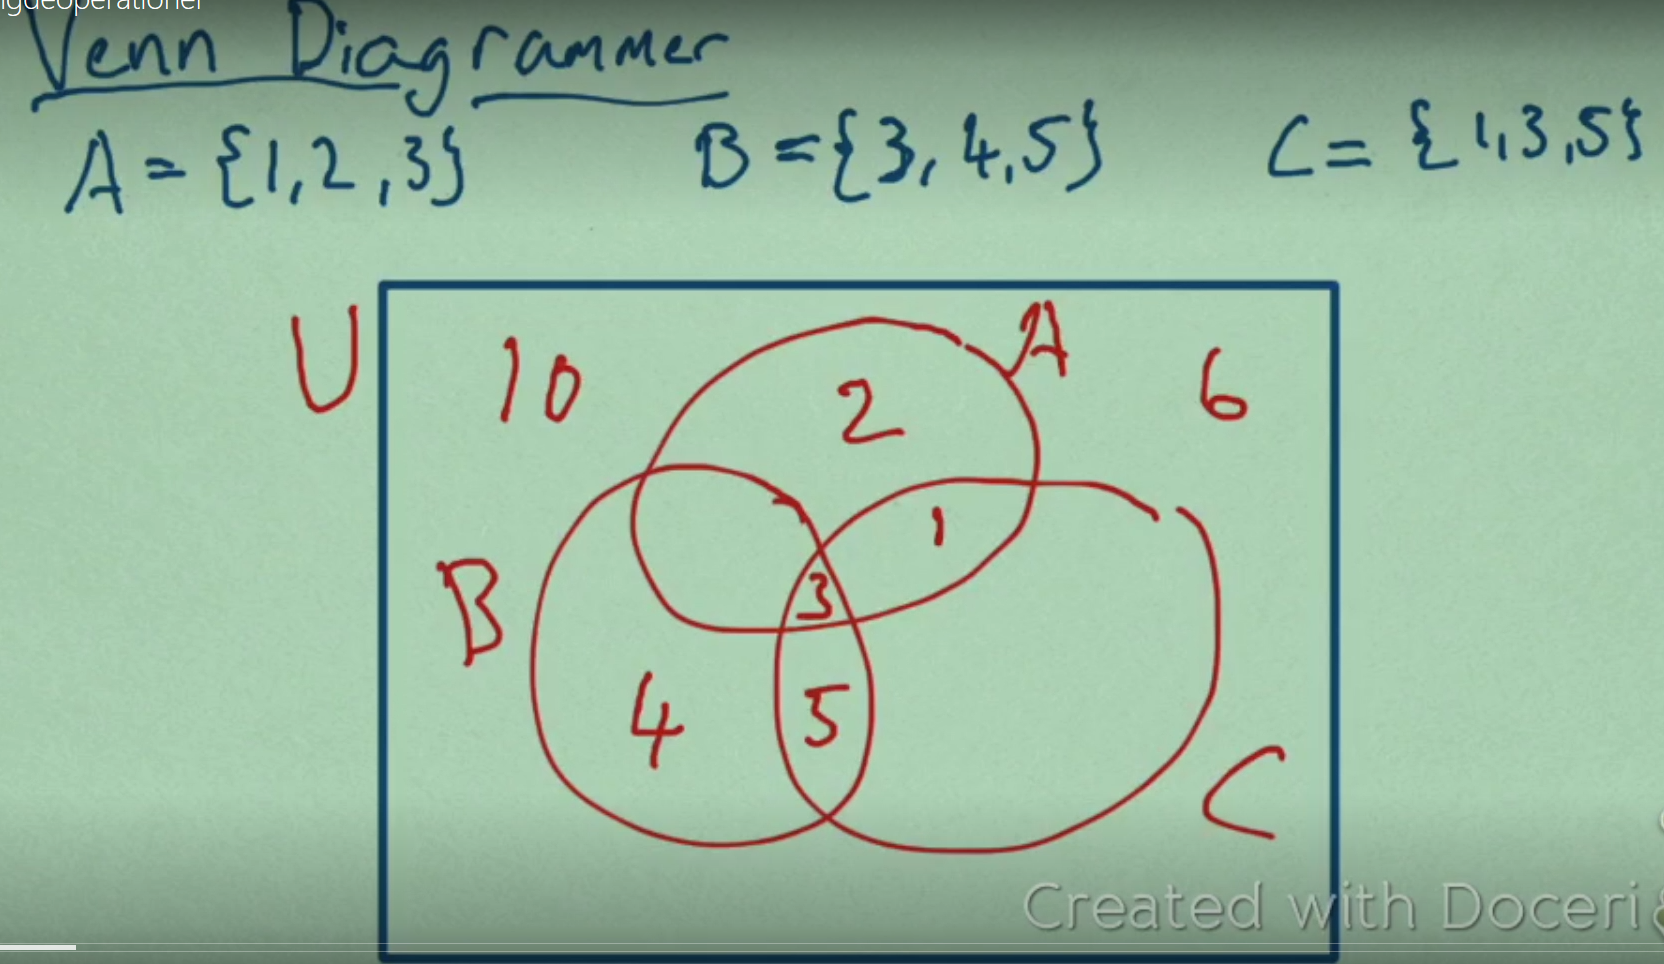 igdeoperationer
Venn Diagrammer
A = {1,2,3} B = {3,4,5} C = {1,3,5}
U
10 2 A 6
1
B 3
4 5
C
Created with Doceri